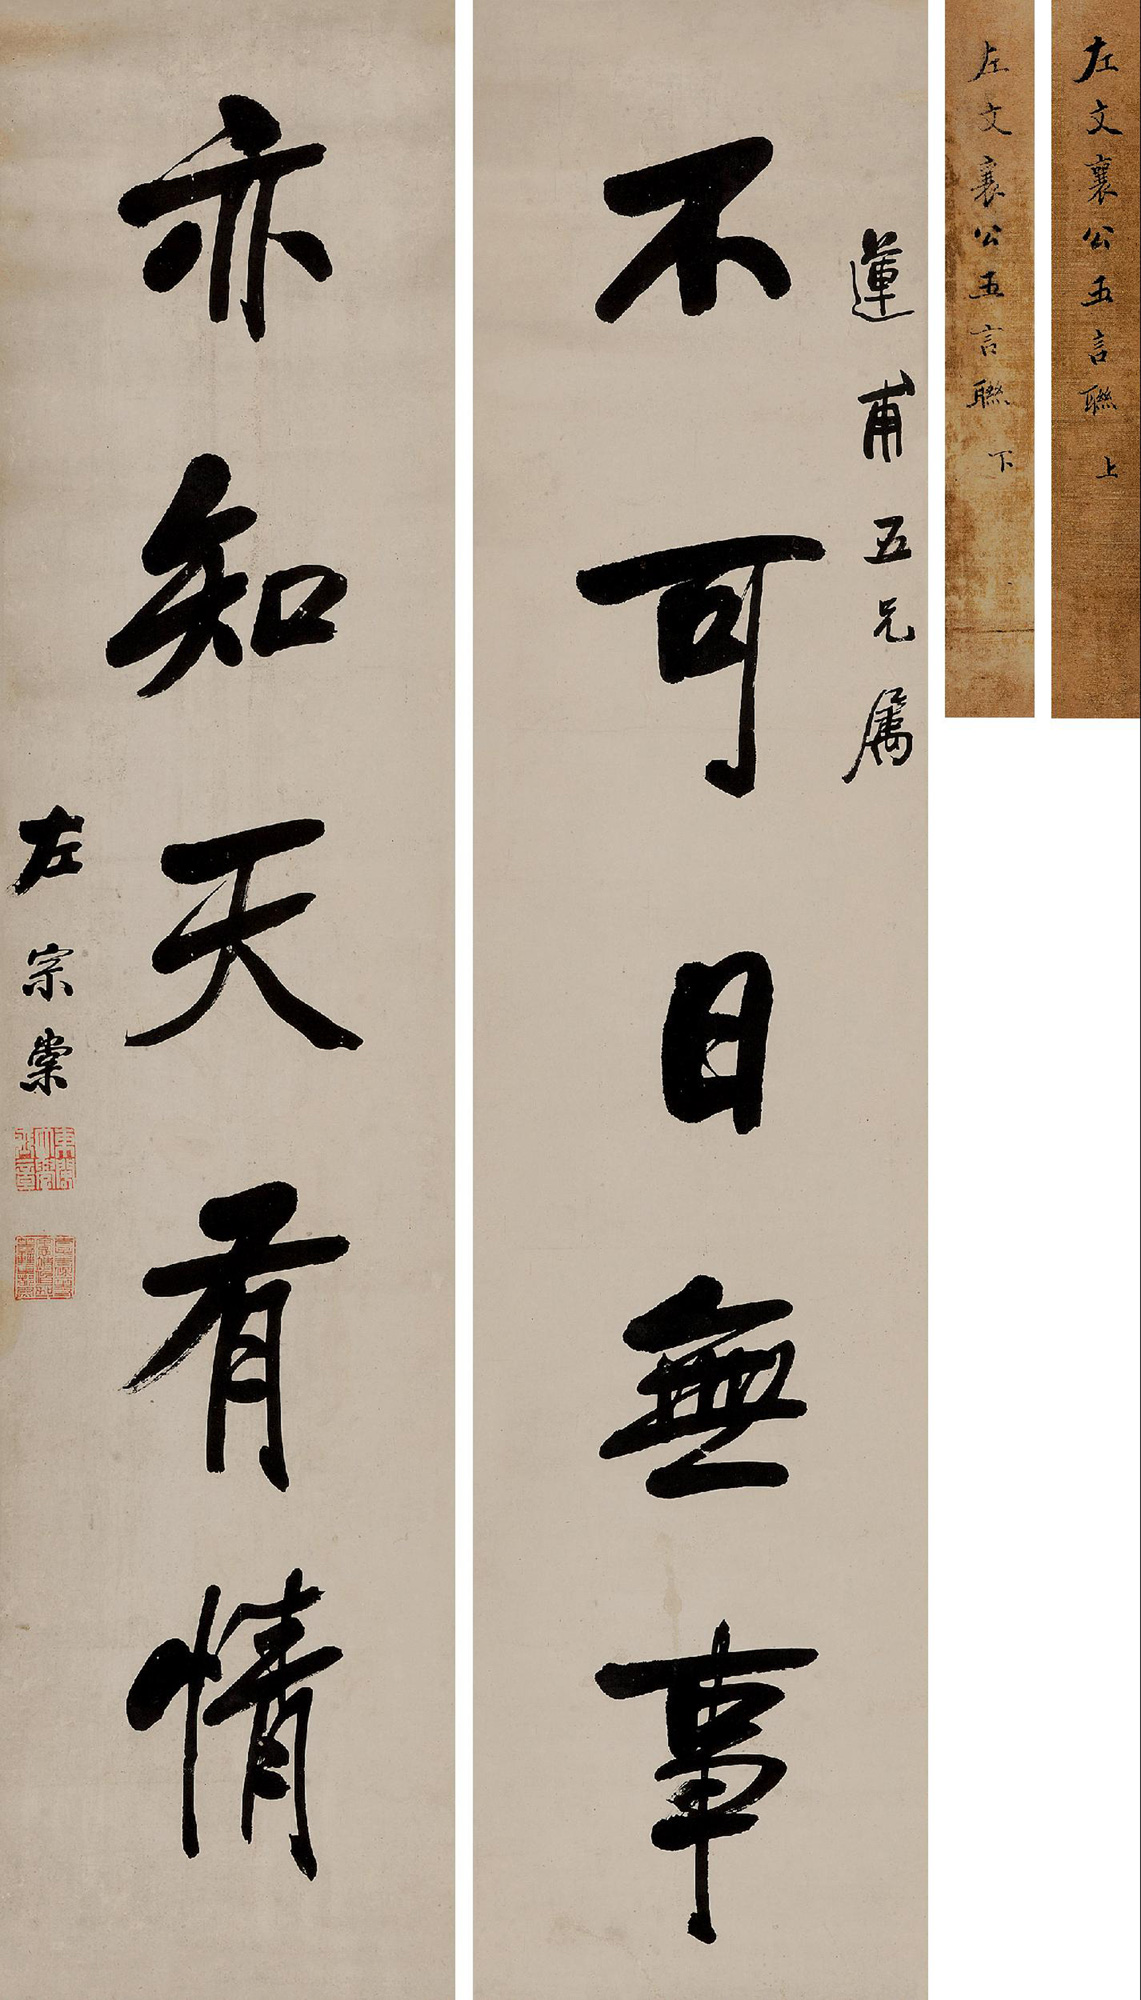 左文襄公五言聯 上
左文襄公五言聯 下
蓮甫五兄屬
不可日無事
亦知天有情
左宗棠